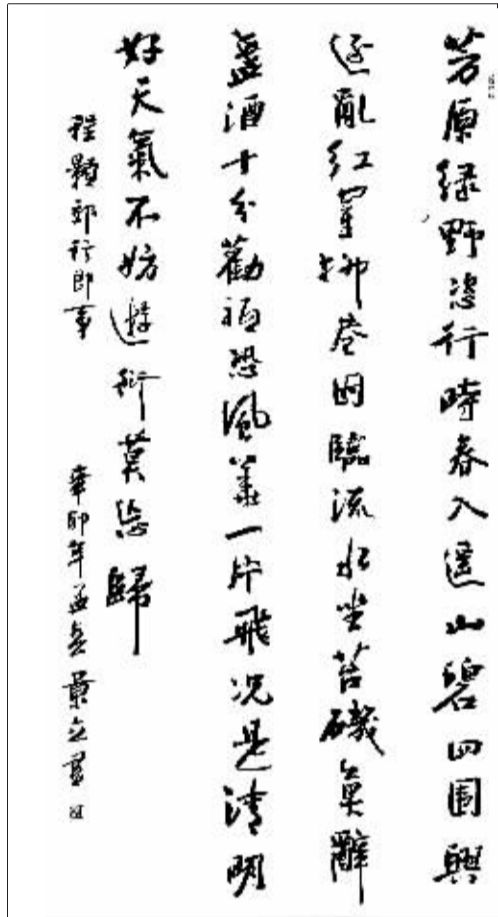 芳原緑野恣行時春入遥山碧四围興
逐亂红穿柳巷困臨流水坐苔磯莫辭
盞酒十分勸祗恐風蕐一片飛况是清明
好天氣不妨遊衍莫忘歸
程顥郊行即事
辛卯年孟冬景立